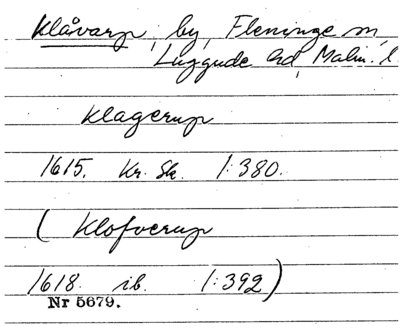 Klåvarp, by, Fleninge sn,
Luggude hd, Malm. l.
Klagerup
1615. Kr. Sk. 1:380.
( Klofverup
1618. ib. 1:392)
Nr 5679.